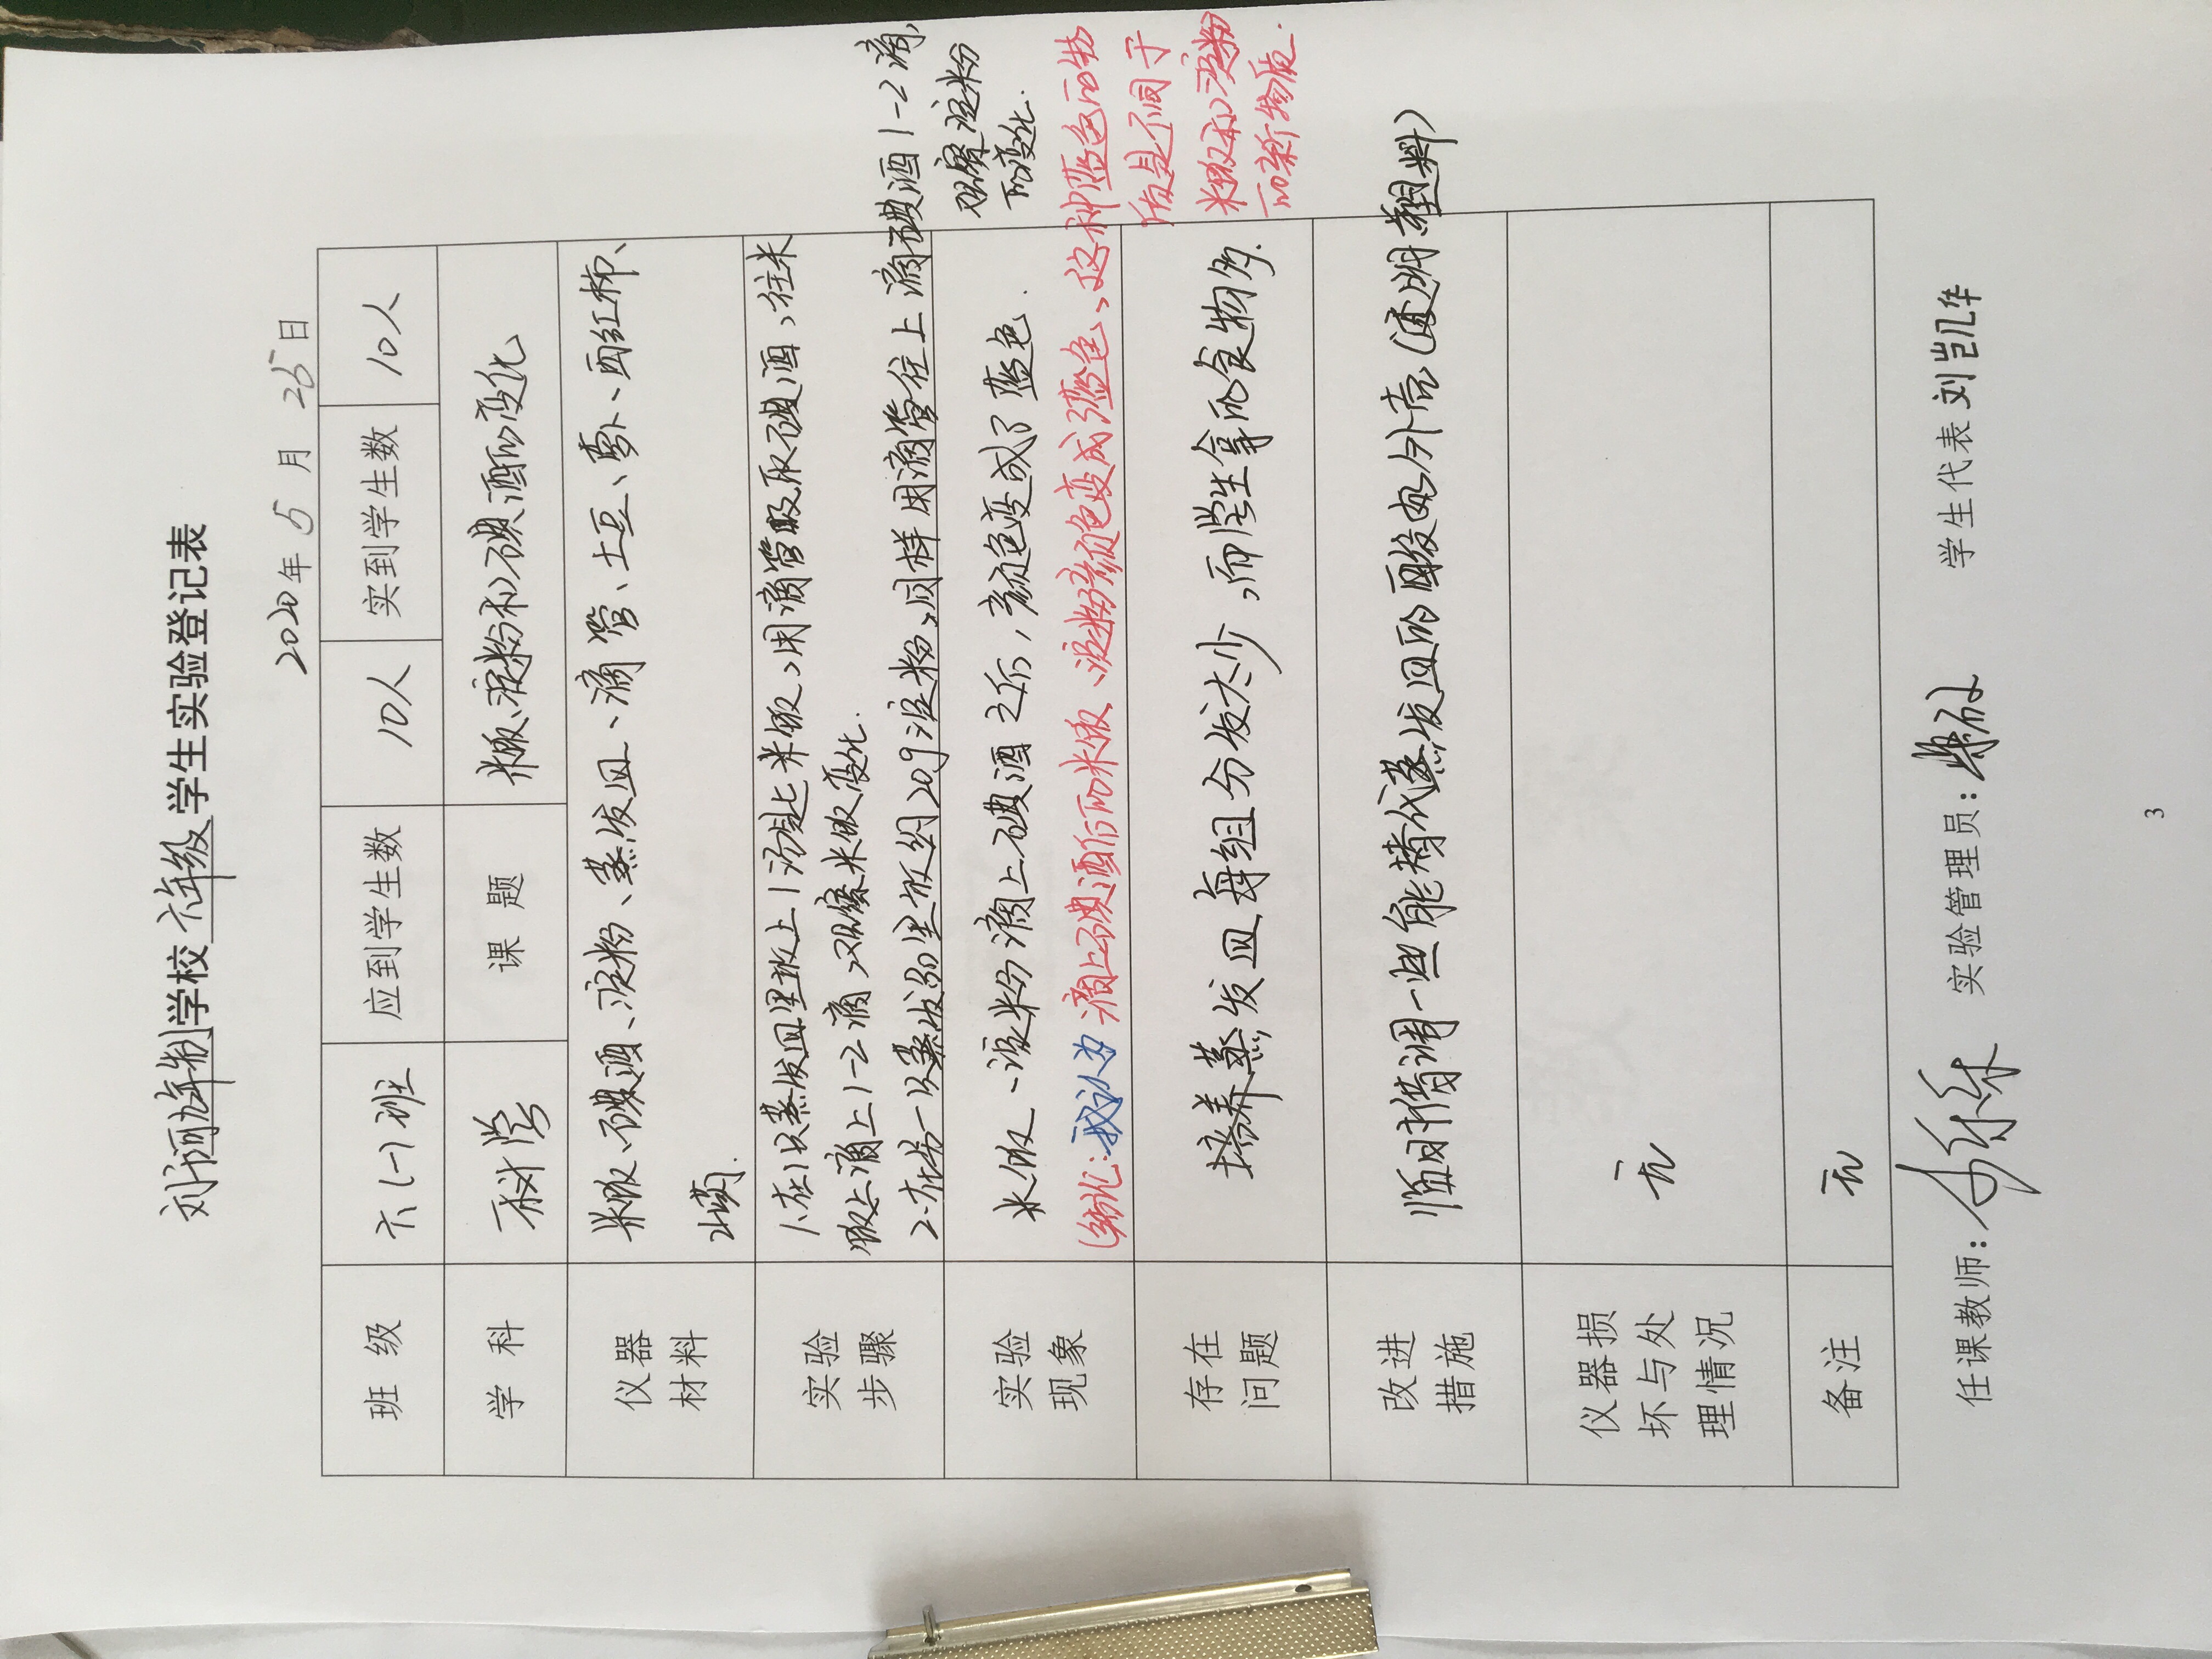 刘河九年制学校六年级学生实验登记表
2020年 5 月 25日
班 级 六(一)班 应到学生数 10人 实到学生数 10人
学 科 科学 课 题 米饭、淀粉和碘酒的变化
仪器材料 米饭、碘酒、淀粉、蒸发皿、滴管、土豆、萝卜、西红柿、
实验步骤 1.在1只蒸发皿里放上1汤匙米饭,用滴管吸取碘酒,往米
饭上滴上1-2滴,观察米饭变化.
2.在另一只蒸发皿里放约20g淀粉,同样用滴管往上滴碘酒1-2滴,
观察淀粉
的变化.
实验现象 米饭、淀粉滴上碘酒之后,颜色变成了蓝色.
(结论:我认为滴上碘酒后的米饭、淀粉颜色变成蓝色、这种蓝色的物
质是不同于
米饭和淀粉
的新物质.
存在问题 培养蒸发皿每组分发太少,而学生拿的食物多.
改进措施 临时借调一些能替代蒸发皿的酸奶外壳(透明塑料)
仪器损坏与处理情况 无
备注 无
任课教师: 实验管理员: 学生代表 刘凯华
3